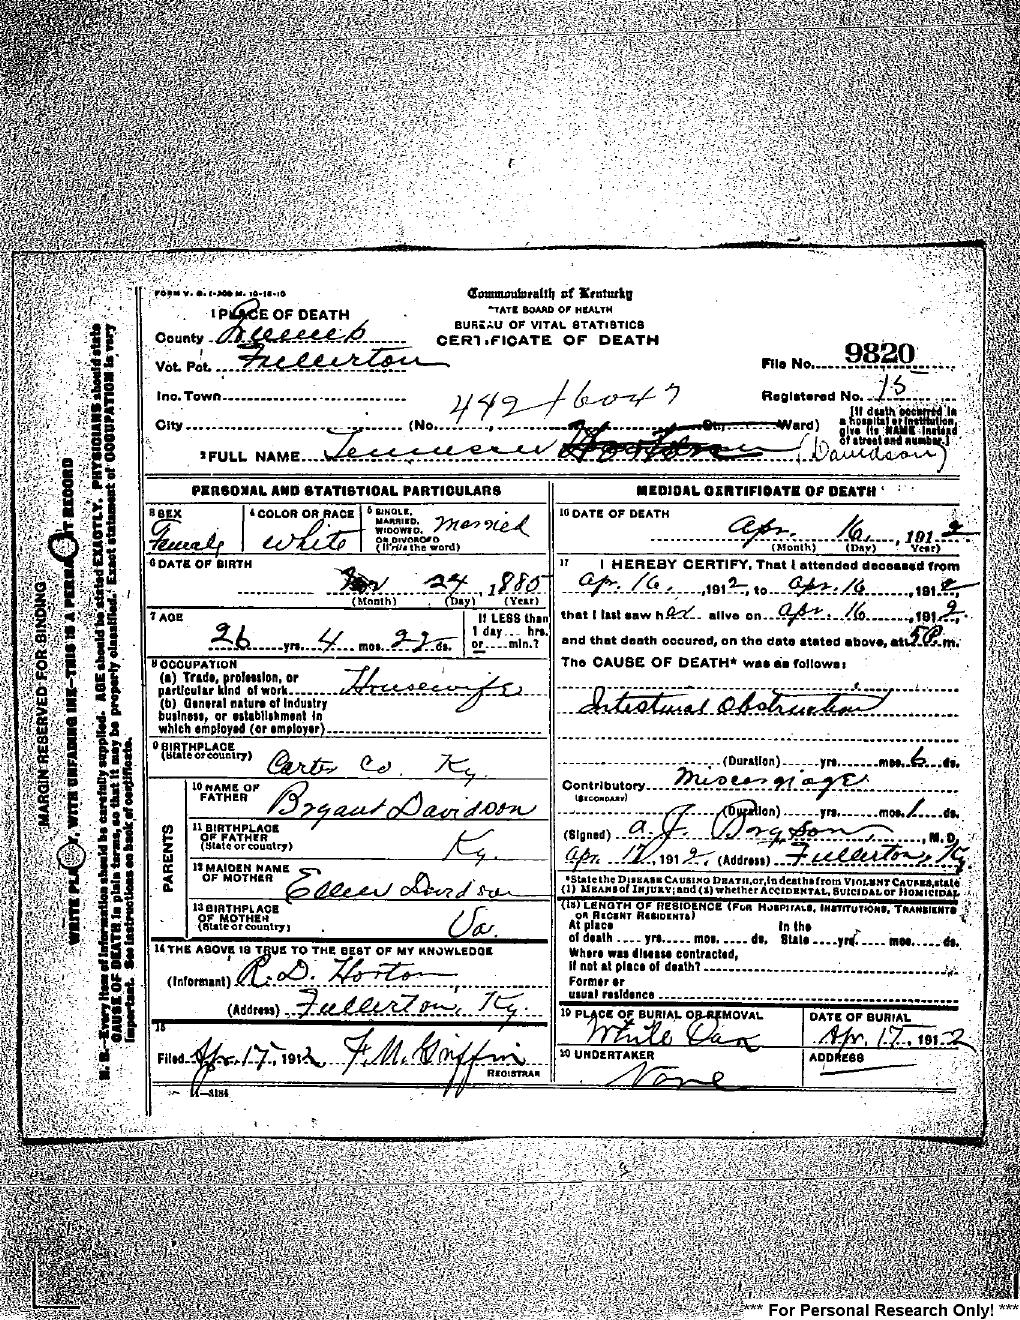 FORM V. S. 1-200 M. 10-15-10
Commonwealth of Kentucky
STATE BOARD OF HEALTH
BUREAU OF VITAL STATISTICS
CERTIFICATE OF DEATH
1 PLACE OF DEATH
County Greenup
Vot. Pct. Fullerton
Inc. Town
City (No. , St., Ward)
442 16047
File No. 9820
Registered No. 15
[If death occurred in a hospital or institution, give its NAME instead of street and number.]
2 FULL NAME Tennessee Horton (Davidson)
PERSONAL AND STATISTICAL PARTICULARS
3 SEX Female
4 COLOR OR RACE White
5 SINGLE, MARRIED, WIDOWED, OR DIVORCED (Write the word) Married
6 DATE OF BIRTH
24, 1885
(Month) (Day) (Year)
7 AGE
26 yrs. 4 mos. 22 ds.
If LESS than 1 day.... hrs. or.... min.?
8 OCCUPATION
(a) Trade, profession, or particular kind of work Housewife
(b) General nature of industry business, or establishment in which employed (or employer)
9 BIRTHPLACE (State or country) Carter Co. Ky.
PARENTS
10 NAME OF FATHER Bryant Davidson
11 BIRTHPLACE OF FATHER (State or country) Ky.
12 MAIDEN NAME OF MOTHER Ellen Davidson
13 BIRTHPLACE OF MOTHER (State or country) Va.
14 THE ABOVE IS TRUE TO THE BEST OF MY KNOWLEDGE
(Informant) R. D. Horton
(Address) Fullerton, Ky.
15
Filed Apr. 17, 1912 F. M. Griffin
REGISTRAR
11-3184
MEDICAL CERTIFICATE OF DEATH
16 DATE OF DEATH
Apr. 16, 1912
(Month) (Day) Year)
17 I HEREBY CERTIFY, That I attended deceased from
Apr. 16, 1912, to Apr. 16, 1912
that I last saw her alive on Apr. 16, 1912.
and that death occured, on the date stated above, at 5 P. m.
The CAUSE OF DEATH* was as follows:
Intestinal Obstruction
(Duration) yrs. mos. 6 ds.
Contributory Miscarriage
(SECONDARY)
(Duration) yrs. mos. 1 ds.
(Signed) A. J. M. D.
Apr. 17, 1912. (Address) Fullerton, Ky
*State the DISEASE CAUSING DEATH, or, in deaths from VIOLENT CAUSES, state (1) MEANS OF INJURY; and (2) whether ACCIDENTAL, SUICIDAL or HOMICIDAL
(18) LENGTH OF RESIDENCE (FOR HOSPITALS, INSTITUTIONS, TRANSIENTS OR RECENT RESIDENTS)
At place of death .... yrs. mos. .... ds. In the State yrs. mos. ds.
Where was disease contracted, if not at place of death?
Former or usual residence
19 PLACE OF BURIAL OR REMOVAL White Oak
DATE OF BURIAL Apr. 17, 1912
20 UNDERTAKER None
ADDRESS
MARGIN RESERVED FOR BINDING
WRITE PLAINLY, WITH UNFADING INK—THIS IS A PERMANENT RECORD
N. B.—Every item of information should be carefully supplied. AGE should be stated EXACTLY. PHYSICIANS should state
CAUSE OF DEATH in plain terms, so that it may be properly classified. Exact statement of OCCUPATION is very
important. See instructions on back of certificate.
*** For Personal Research Only! ***